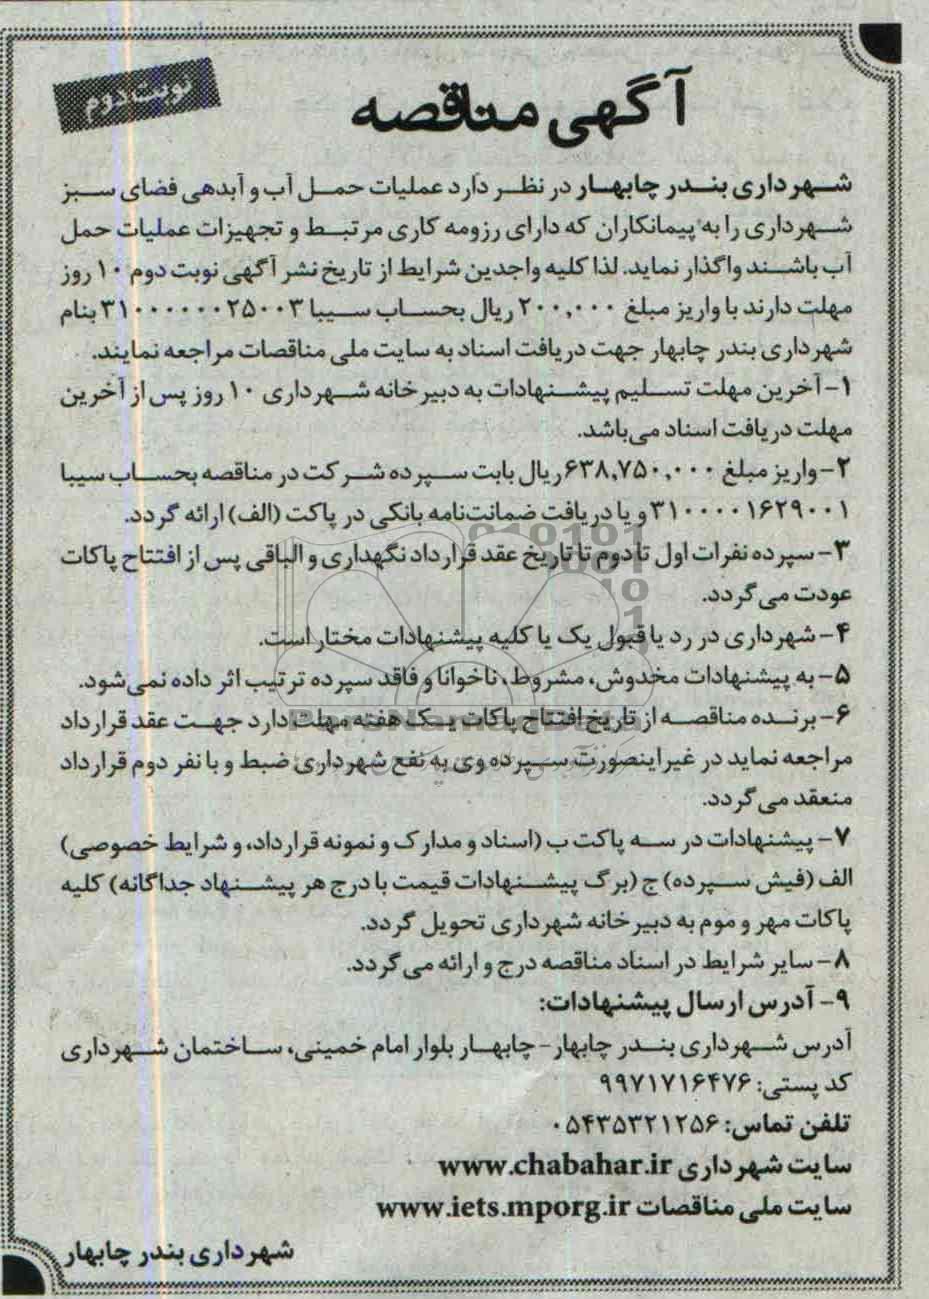 نوبت دوم
آگهی مناقصه
شهرداری بندر چابهار در نظر دارد عملیات حمل آب و آبدهی فضای سبز
شهرداری را به پیمانکاران که دارای رزومه کاری مرتبط و تجهیزات عملیات حمل
آب باشند واگذار نماید. لذا کلیه واجدین شرایط از تاریخ نشر آگهی نوبت دوم ۱۰ روز
مهلت دارند با واریز مبلغ ۲۰۰,۰۰۰ ریال بحساب سیبا ۳۱۰۰۰۰۰۰۲۵۰۰۳ بنام
شهرداری بندر چابهار جهت دریافت اسناد به سایت ملی مناقصات مراجعه نمایند.
۱- آخرین مهلت تسلیم پیشنهادات به دبیرخانه شهرداری ۱۰ روز پس از آخرین
مهلت دریافت اسناد می‌باشد.
۲- واریز مبلغ ۶۳۸,۷۵۰,۰۰۰ ریال بابت سپرده شرکت در مناقصه بحساب سیبا
۳۱۰۰۰۰۱۶۲۹۰۰۱ و یا دریافت ضمانت‌نامه بانکی در پاکت (الف) ارائه گردد.
۳- سپرده نفرات اول تا دوم تا تاریخ عقد قرارداد نگهداری و الباقی پس از افتتاح پاکات
عودت می گردد.
۴- شهرداری در رد یا قبول یک یا کلیه پیشنهادات مختار است.
۵- به پیشنهادات مخدوش، مشروط، ناخوانا و فاقد سپرده ترتیب اثر داده نمی‌شود.
۶- برنده مناقصه از تاریخ افتتاح پاکات یک هفته مهلت دارد جهت عقد قرارداد
مراجعه نماید در غیراینصورت سپرده وی به نفع شهرداری ضبط و با نفر دوم قرارداد
منعقد می گردد.
۷- پیشنهادات در سه پاکت ب (اسناد و مدارک و نمونه قرارداد، و شرایط خصوصی)
الف (فیش سپرده) ج (برگ پیشنهادات قیمت با درج هر پیشنهاد جداگانه) کلیه
پاکات مهر و موم به دبیرخانه شهرداری تحویل گردد.
۸- سایر شرایط در اسناد مناقصه درج و ارائه می گردد.
۹- آدرس ارسال پیشنهادات:
آدرس شهرداری بندر چابهار- چابهار بلوار امام خمینی، ساختمان شهرداری
کد پستی: ۹۹۷۱۷۱۶۴۷۶
تلفن تماس: ۰۵۴۳۵۳۲۱۲۵۶
سایت شهرداری www.chabahar.ir
سایت ملی مناقصات www.iets.mporg.ir
شهرداری بندر چابهار
ParsNamadData